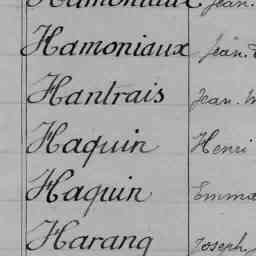 Hamoniaux Jean.
Hamoniaux Jean.
Hantrais Jean. M
Haquin Henri
Haquin Emma
Harang Joseph